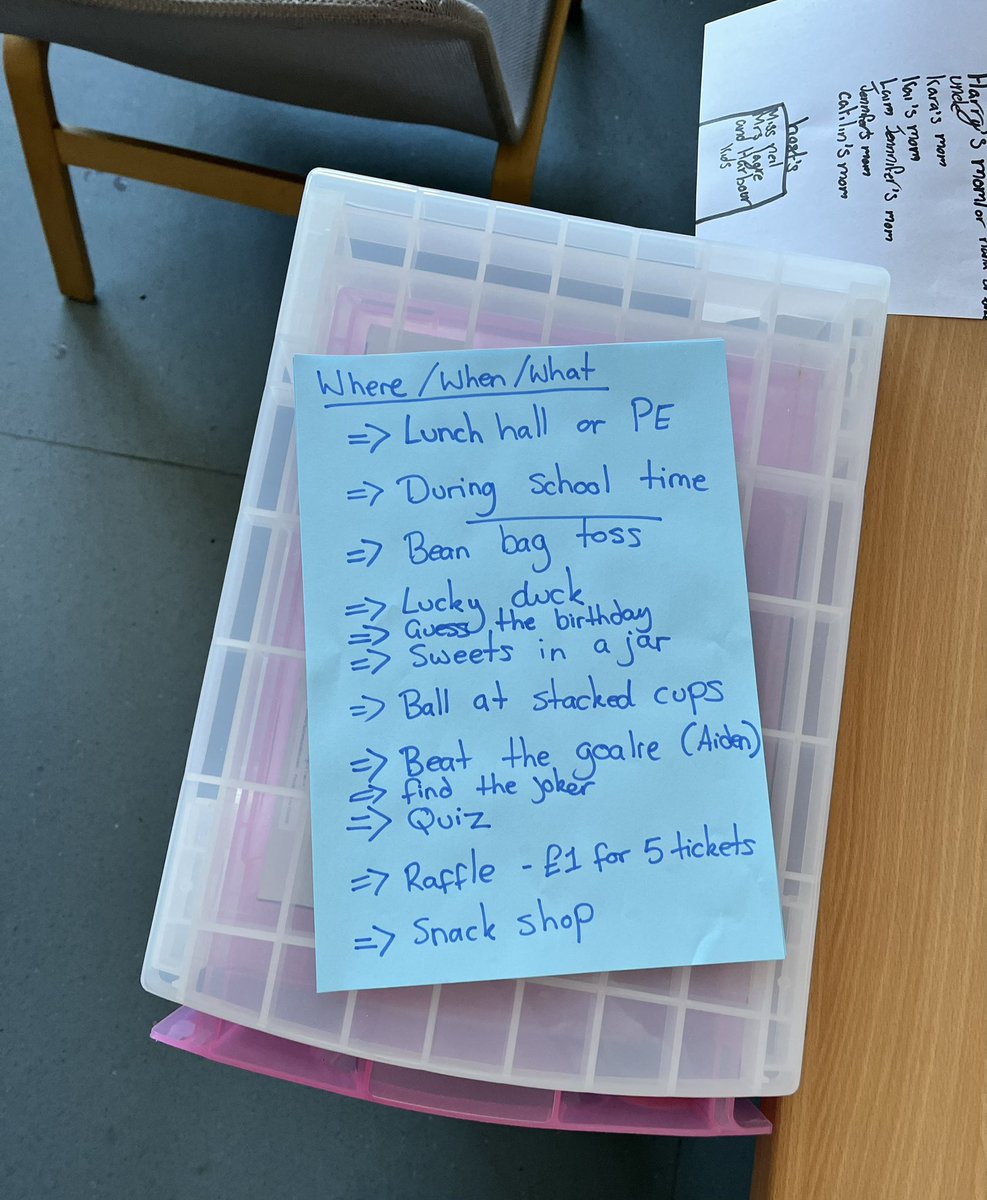 Where/When/What
=> Lunch hall or PE
=> During school time
=> Bean bag toss
=> Lucky duck
=> Guess the birthday
=> Sweets in a jar
=> Ball at stacked cups
=> Beat the goalie (Aiden)
=> find the joker
=> Quiz
=> Raffle - £1 for 5 tickets
=> Snack shop
Harry's mom/or
uncle
Kara's mom
Kai's mom
Liam Jennifer's mom
Jennifer's mom
Catilin's mom
host's
Miss Neil
Mrs
and Harbour
kids